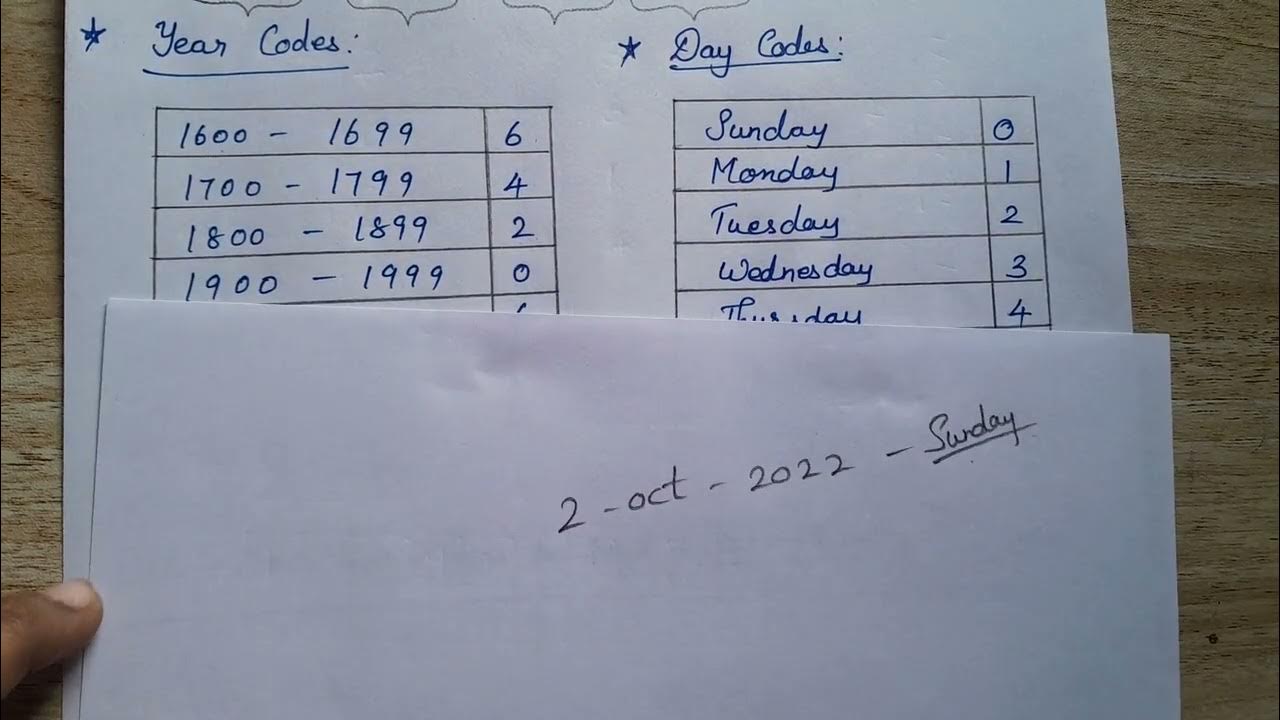 * Year Codes:
1600 - 1699 6
1700 - 1799 4
1800 - 1899 2
1900 - 1999 0
* Day Codes:
Sunday 0
Monday 1
Tuesday 2
Wednesday 3
Thursday 4
2 - oct - 2022 - Sunday